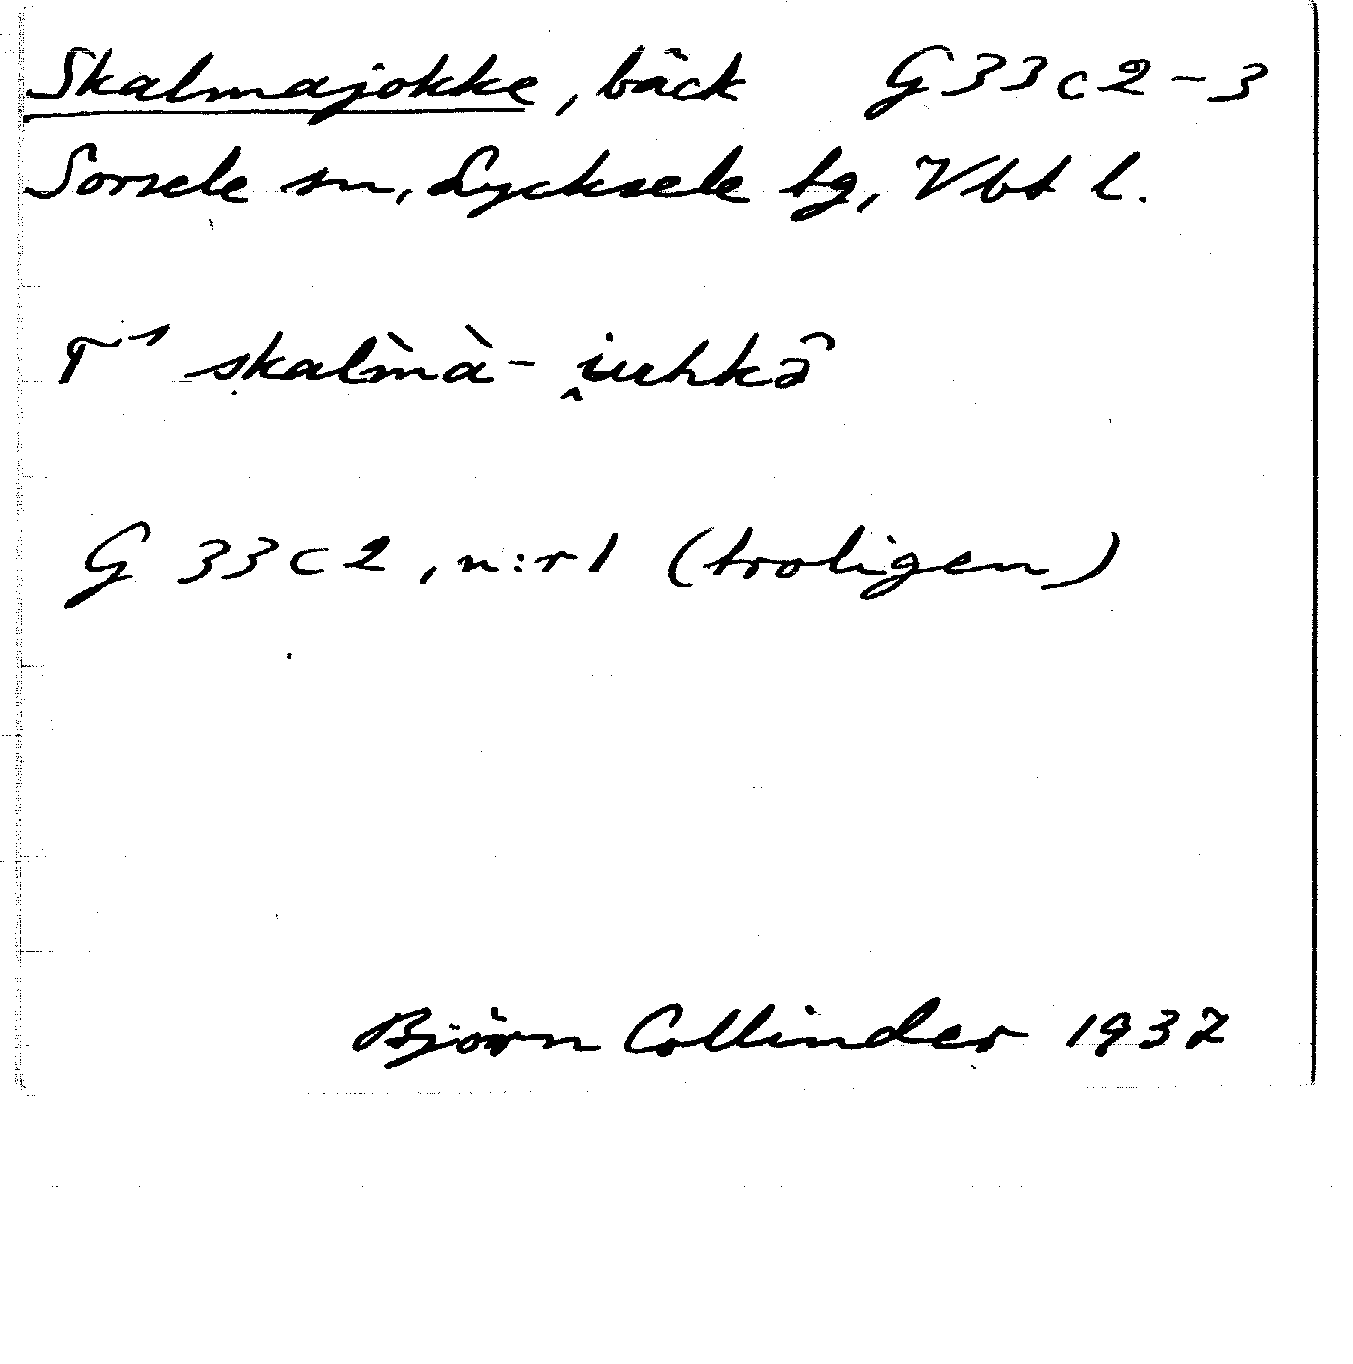 Skalmajokke, bäck G 33 c 2 - 3
Sorsele sn, Lycksele tg, Vbt l.
T¹ skal̀mà- i̯uhkə̑
G 33 c 2, n:r 1 (troligen)
Björn Collinder 1937